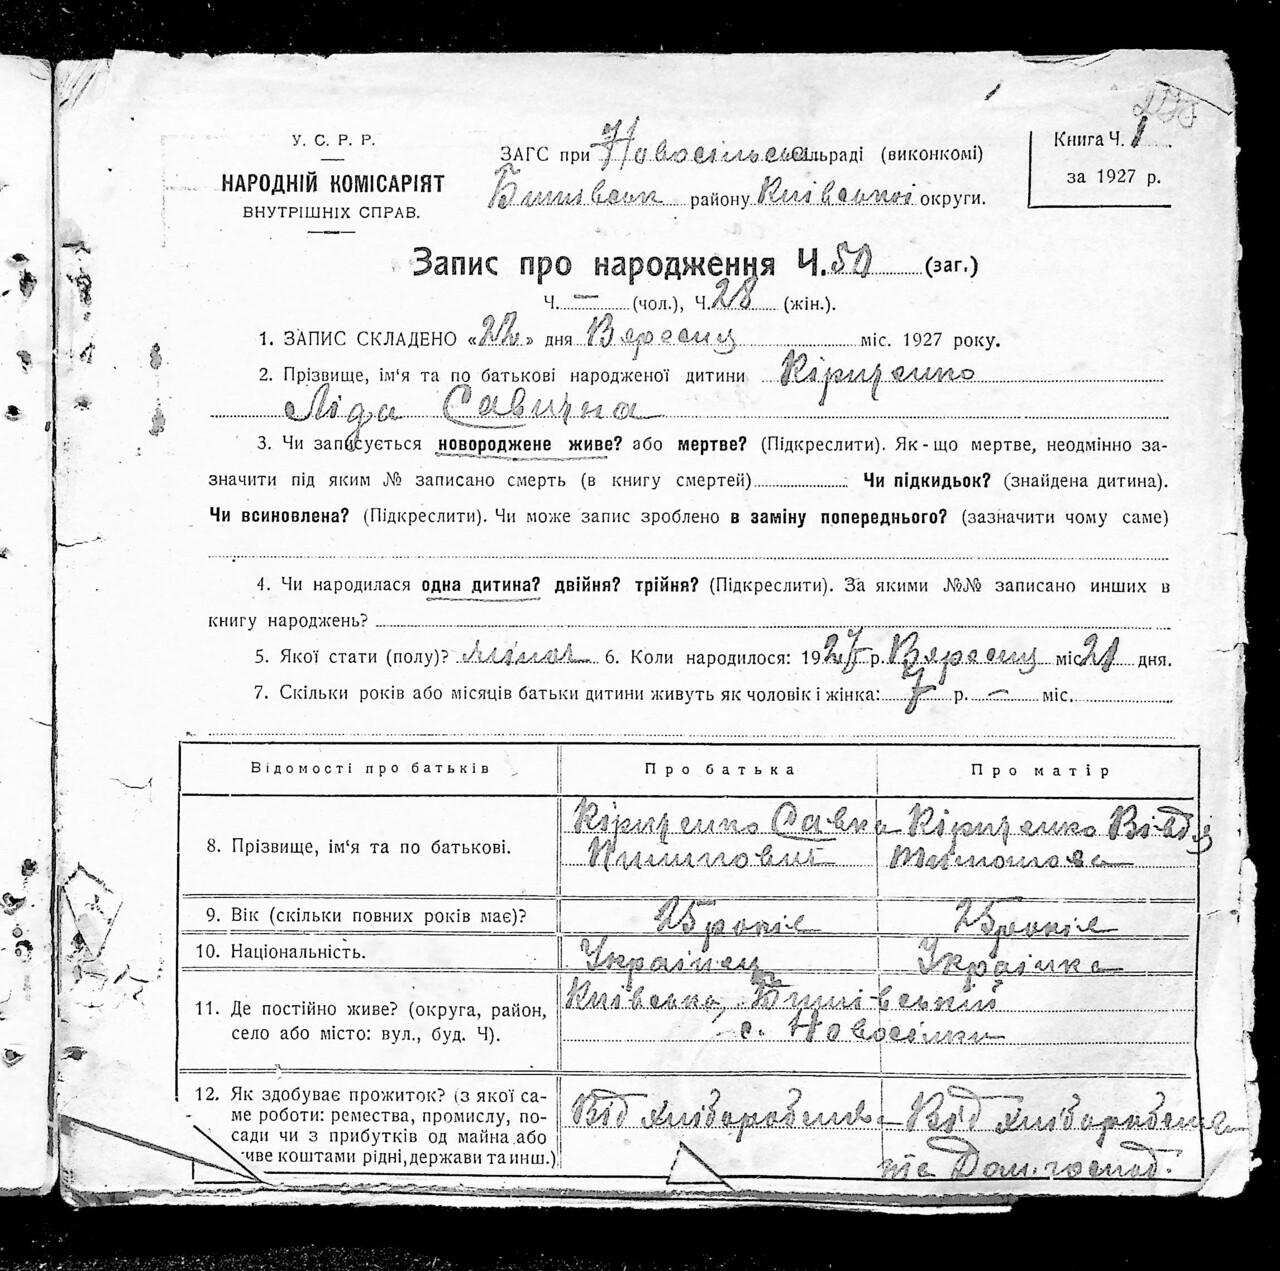 У. С. Р. Р.
НАРОДНІЙ КОМІСАРІЯТ
ВНУТРІШНІХ СПРАВ.
ЗАГС при Новосільськ сільраді (виконкомі)
Бишівськ району Київської округи.
Книга Ч. 1
за 1927 р.
Запис про народження Ч. 50 (заг.)
Ч. — (чол.), Ч. 28 (жін.).
1. ЗАПИС СКЛАДЕНО «22» дня Вересня міс. 1927 року.
2. Прізвище, ім‘я та по батькові народженої дитини Кіриченко
Ліда Савична
3. Чи записується новороджене живе? або мертве? (Підкреслити). Як-що мертве, неодмінно за-
значити під яким № записано смерть (в книгу смертей) Чи підкидьок? (знайдена дитина).
Чи всиновлена? (Підкреслити). Чи може запис зроблено в заміну попереднього? (зазначити чому саме)
4. Чи народилася одна дитина? двійня? трійня? (Підкреслити). За якими №№ записано инших в
книгу народжень?
5. Якої стати (полу)? жіноч 6. Коли народилося: 1927 р. Вересня міс. 21 дня.
7. Скільки років або місяців батьки дитини живуть як чоловік і жінка: 7 р. — міс.
Відомості про батьків Про батька Про матір
8. Прізвище, ім‘я та по батькові. Кіриченко Савка Пилипович Кіриченко Вівдя Тимошова
9. Вік (скільки повних років має)? 25 років 25 років
10. Національність. Українец Українка
11. Де постійно живе? (округа, район, Київська, Бишівський
село або місто: вул., буд. Ч). с. Новосілки
12. Як здобуває прожиток? (з якої са-
ме роботи: ремества, промислу, по- Від хліборобства Від хліборобства
сади чи з прибутків од майна або
живе коштами рідні, держави та инш.) та Дом. господ.